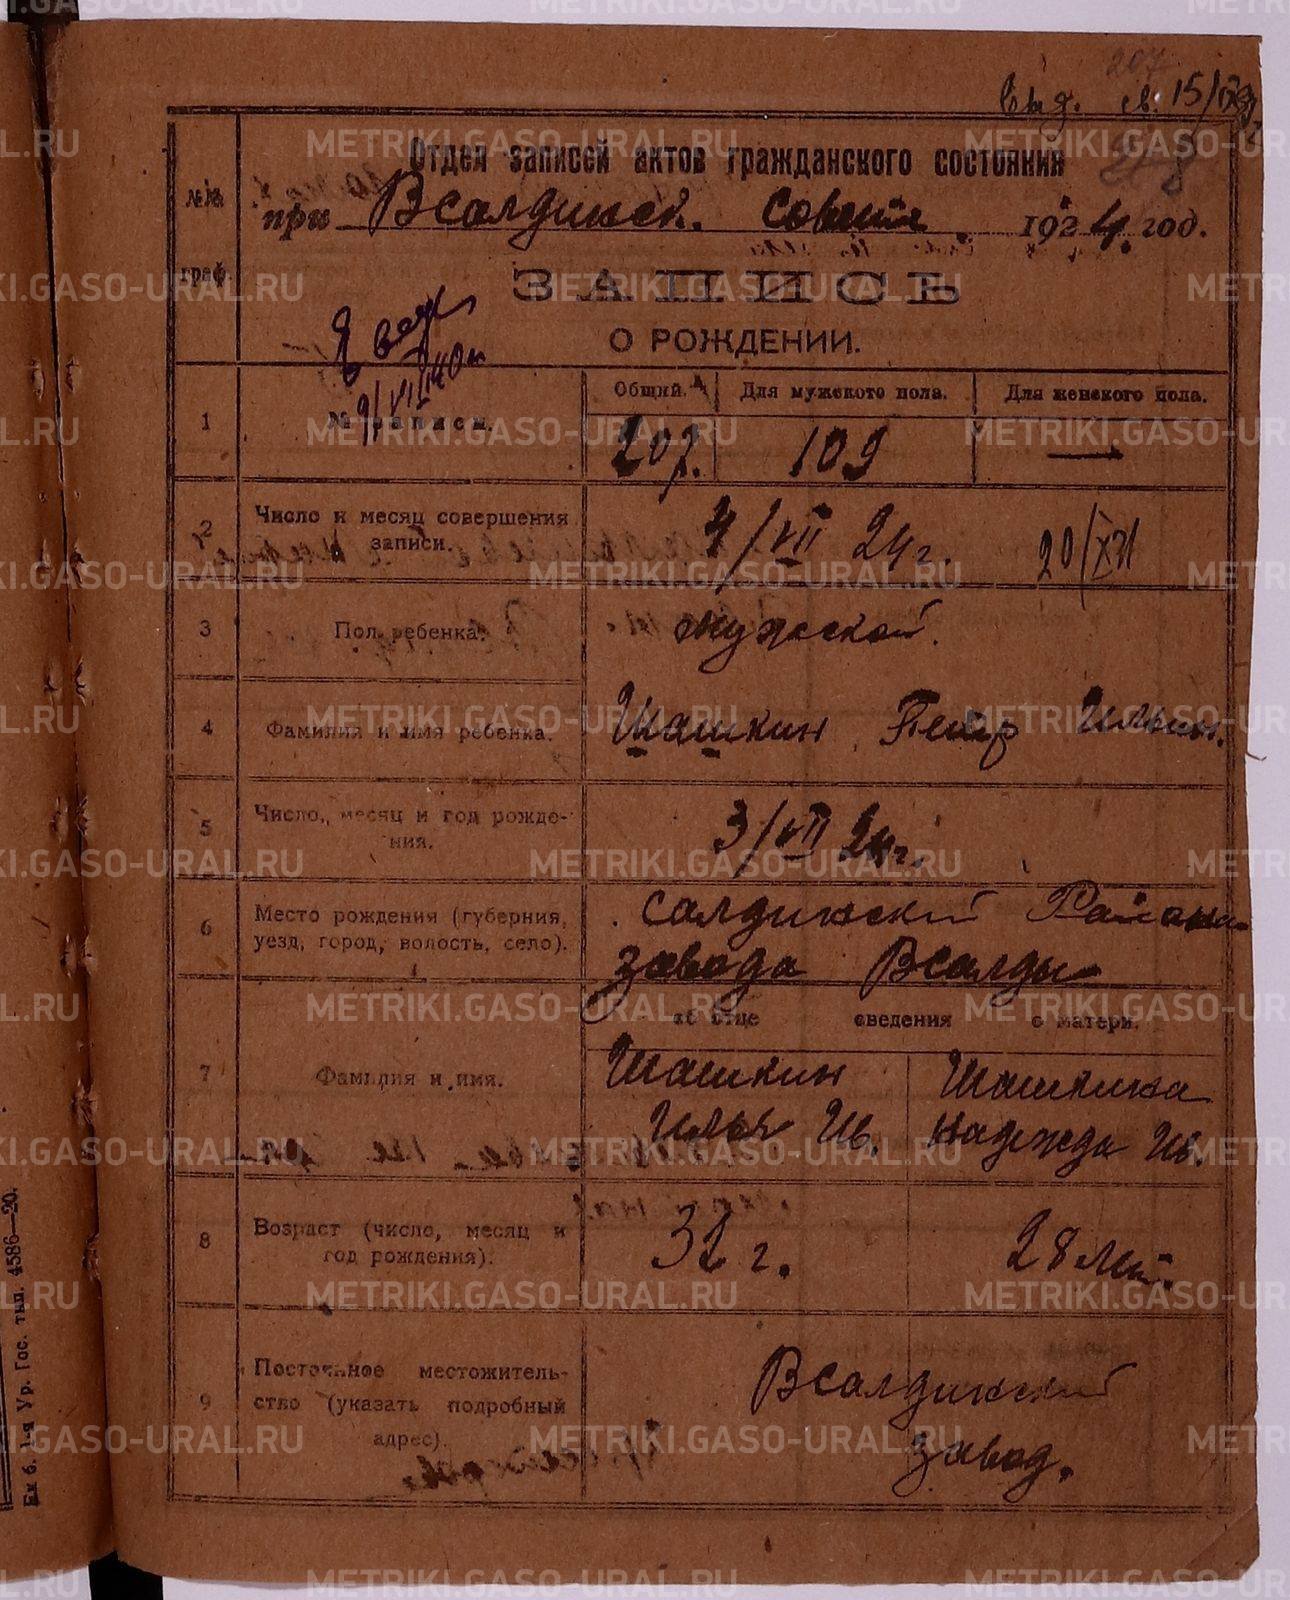 207
Выд. св. 15/
Отдел записей актов гражданского состояния
№№ граф.
при Всалдинск. Совете. 1924. год.
ЗАПИСЬ
О РОЖДЕНИИ.
9/VII 40 г.
1 № записи.
Общий. Для мужского пола. Для женского пола.
207. 109 —
2 Число и месяц совершения записи.
4/VII 24 г. 20/XII
3 Пол ребенка. мужской.
4 Фамилия и имя ребенка. Шашкин Петр Ильин.
5 Число, месяц и год рождения.
3/VII 24 г.
6 Место рождения (губерния, уезд, город, волость, село).
Салдинский Района
завода Всалды
об отце сведения о матери.
7 Фамилия и имя.
Шашкин Шашкина
Илья Ив. Надежда Ив.
8 Возраст (число, месяц и год рождения).
32 г. 28 лет.
9 Постоянное местожительство (указать подробный адрес).
Всалдинский
завод.
Ек б. 1-я Ур. Гос. тип. 4586—20.
METRIKI.GASO-URAL.RU